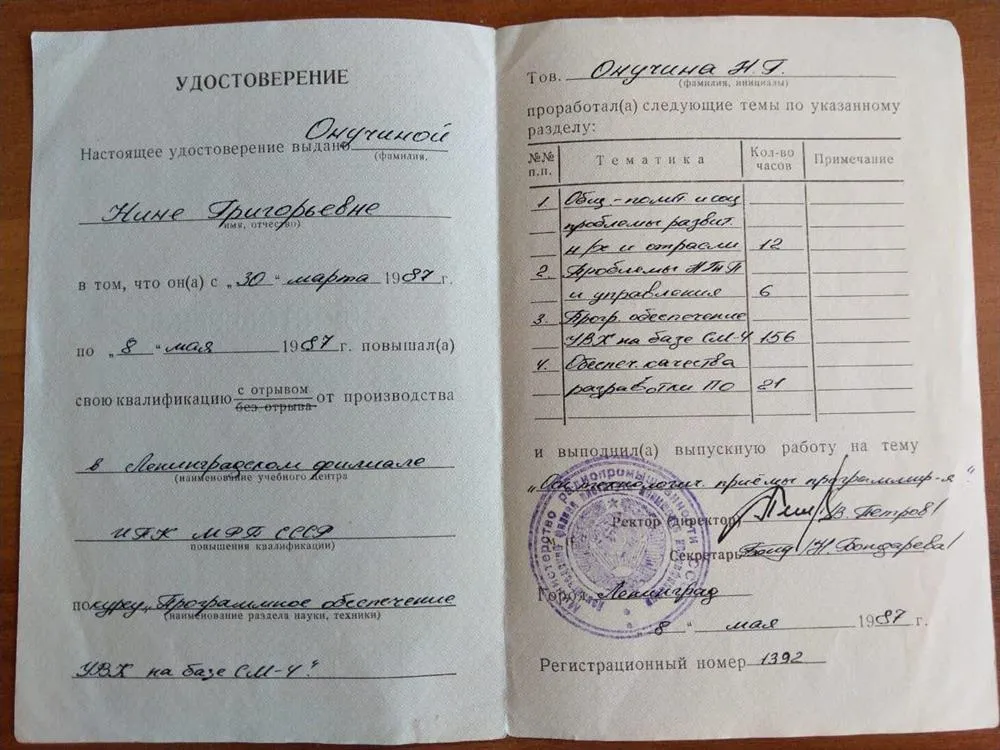 УДОСТОВЕРЕНИЕ
Настоящее удостоверение выдано Онучиной
(фамилия,
Нине Григорьевне
имя, отчество)
в том, что он(а) с „30“ марта 1987 г.
по „8“ мая 1987 г. повышал(а)
свою квалификацию с отрывом
без отрыва от производства
в Ленинградском филиале
(наименование учебного центра
ИПК МРП СССР
повышения квалификации)
по курсу „Программное обеспечение
(наименование раздела науки, техники)
УВК на базе СМ-4“.
Тов. Онучина Н.Г.
(фамилия, инициалы)
проработал(а) следующие темы по указанному
разделу:
№№ п.п. Тематика Кол-во часов Примечание
1. Общ.-полит. и соц
проблемы развит.
н/х и отрасли 12
2. Проблемы НТП
и управления 6
3. Прогр. обеспечение
УВК на базе СМ-4 156
4. Обеспеч. качества
разработки ПО 21
и выполнил(а) выпускную работу на тему
„Осн. технологич. приёмы программир-я“
Ректор (директор) /В. Петров/
Секретарь /Н. Бондарева/
Город Ленинград
„8“ мая 1987 г.
Регистрационный номер 1392
Министерство радиопромышленности СССР